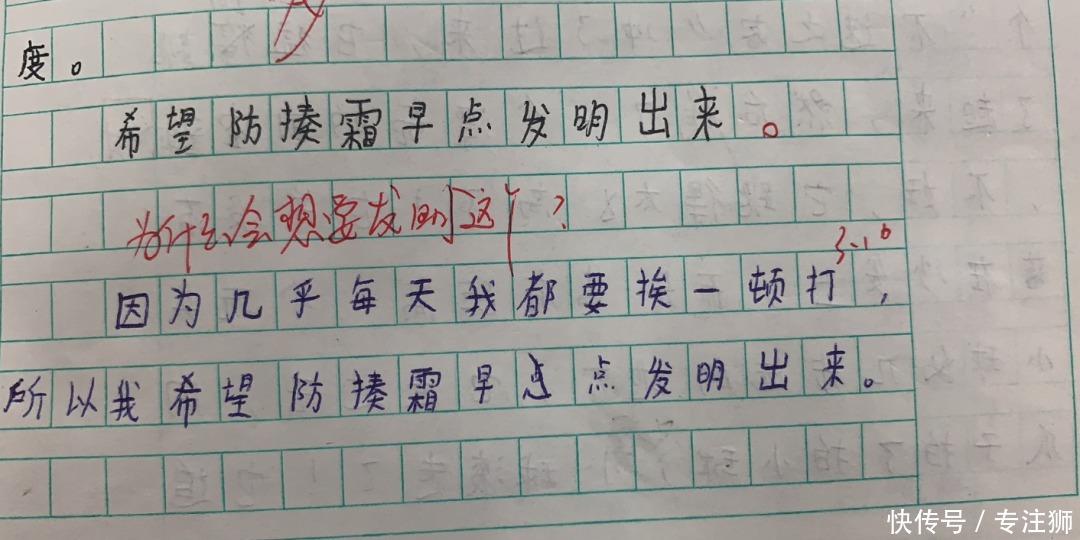 度。
希望防揍霜早点发明出来。
为什么会想要发明这个？
3.16
因为几乎每天我都要挨一顿打，
所以我希望防揍霜早点点发明出来。
快传号 / 专注狮